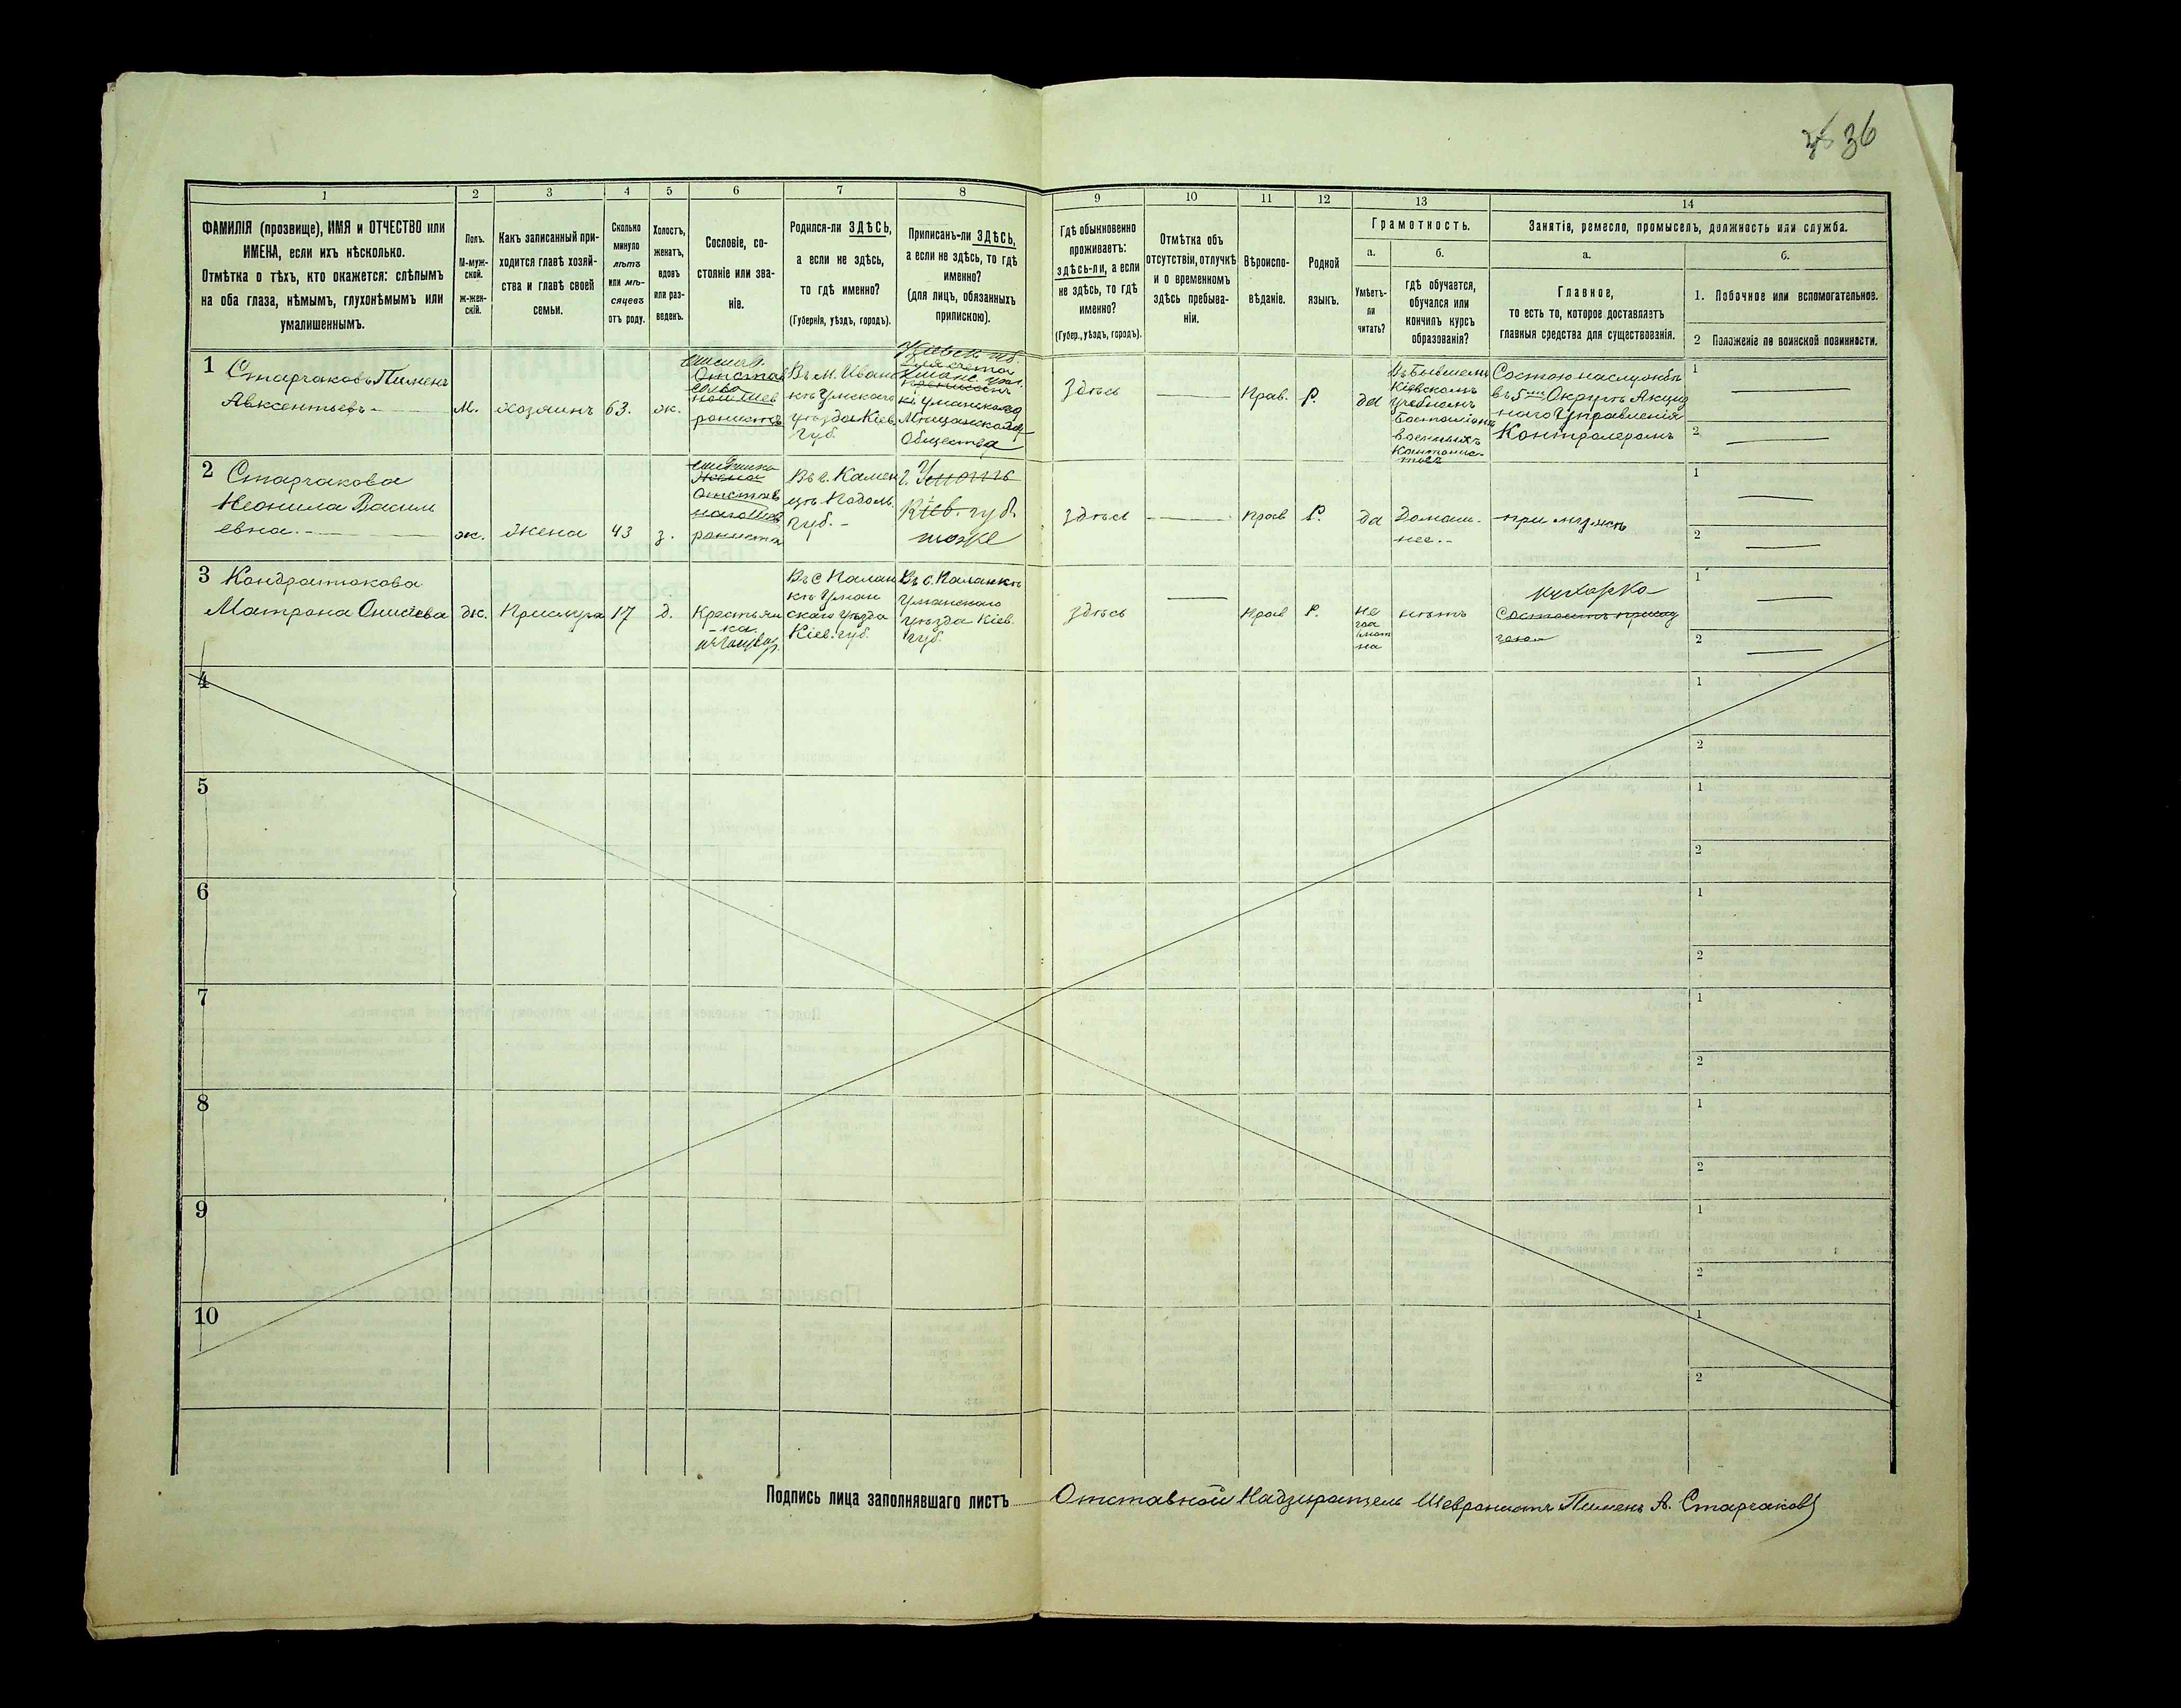 36
1 2 3 4 5 6 7 8 9 10 11 12 13 14
ФАМИЛІЯ (прозвище), ИМЯ и ОТЧЕСТВО или
ИМЕНА, если ихъ нѣсколько.
Отмѣтка о тѣхъ, кто окажется: слѣпымъ
на оба глаза, нѣмымъ, глухонѣмымъ или
умалишеннымъ.
Полъ.
М-муж-
ской.
ж-жен-
скій.
Какъ записанный при-
ходится главѣ хозяй-
ства и главѣ своей
семьи.
Сколько
минуло
лѣтъ
или мѣ-
сяцевъ
отъ роду.
Холостъ,
женатъ,
вдовъ
или раз-
веденъ.
Сословіе, со-
стояніе или зва-
ніе.
Родился-ли ЗДѢСЬ,
а если не здѣсь,
то гдѣ именно?
(Губернія, уѣздъ, городъ).
Приписанъ-ли ЗДѢСЬ,
а если не здѣсь, то гдѣ
именно?
(для лицъ, обязанныхъ
припискою).
Гдѣ обыкновенно
проживаетъ:
здѣсь-ли, а если
не здѣсь, то гдѣ
именно?
(Губер., уѣздъ, городъ).
Отмѣтка объ
отсутствіи, отлучкѣ
и о временномъ
здѣсь пребыва-
ніи.
Вѣроиспо-
вѣданіе.
Родной
языкъ.
Грамотность.
а.
Умѣетъ-
ли
читать?
б.
гдѣ обучается,
обучался или
кончилъ курсъ
образованія?
Занятія, ремесло, промыселъ, должность или служба.
а.
Главное,
то есть то, которое доставляетъ
главныя средства для существованія.
б.
1. Побочное или вспомогательное.
2 Положеніе по воинской повинности.
1
Старчаковъ Пименъ
Авксентьевъ
м.
хозяинъ
63.
ж.
Въ м. Ивань
кѣ Уманскаго
уѣзда Кіев.
Губ.
Уманскаго
Мѣщанскаго
Общества
Здѣсь
Прав.
Р.
да
Въ бывшемъ
Кіевскомъ
учебномъ
Баталіонѣ
военныхъ
Кантонис-
товъ
Состою на службѣ
въ 5мъ Округѣ Акциз
наго Управленія
Контролеромъ
1
2
2
Старчакова
Неонила Васил
евна.
ж.
Жена
43
з.
Въ г. Камен
цѣ Подоль.
Губ.
г. Умань
Кіев. губ.
тоже
здѣсь
Прав
Р.
да
Домаш-
нее.
при мужѣ
1
2
3
Кондратюкова
Матрона
ж.
Прислуга
17
д.
Крестьян
ка.
Въ с Палан
кѣ Уман
скаго Уѣзда
Кіев. губ.
Въ с. Паланкѣ
Уманскаго
уѣзда Кіев.
губ.
здѣсь
Прав
Р.
не
гра
мот
на
нѣтъ
кухарка
1
2
4
1
2
5
1
2
6
1
2
7
1
2
8
1
2
9
1
2
10
1
2
Подпись лица заполнявшаго листъ Отставной Надзиратель Шевронистъ Пименъ А. Старчаковъ